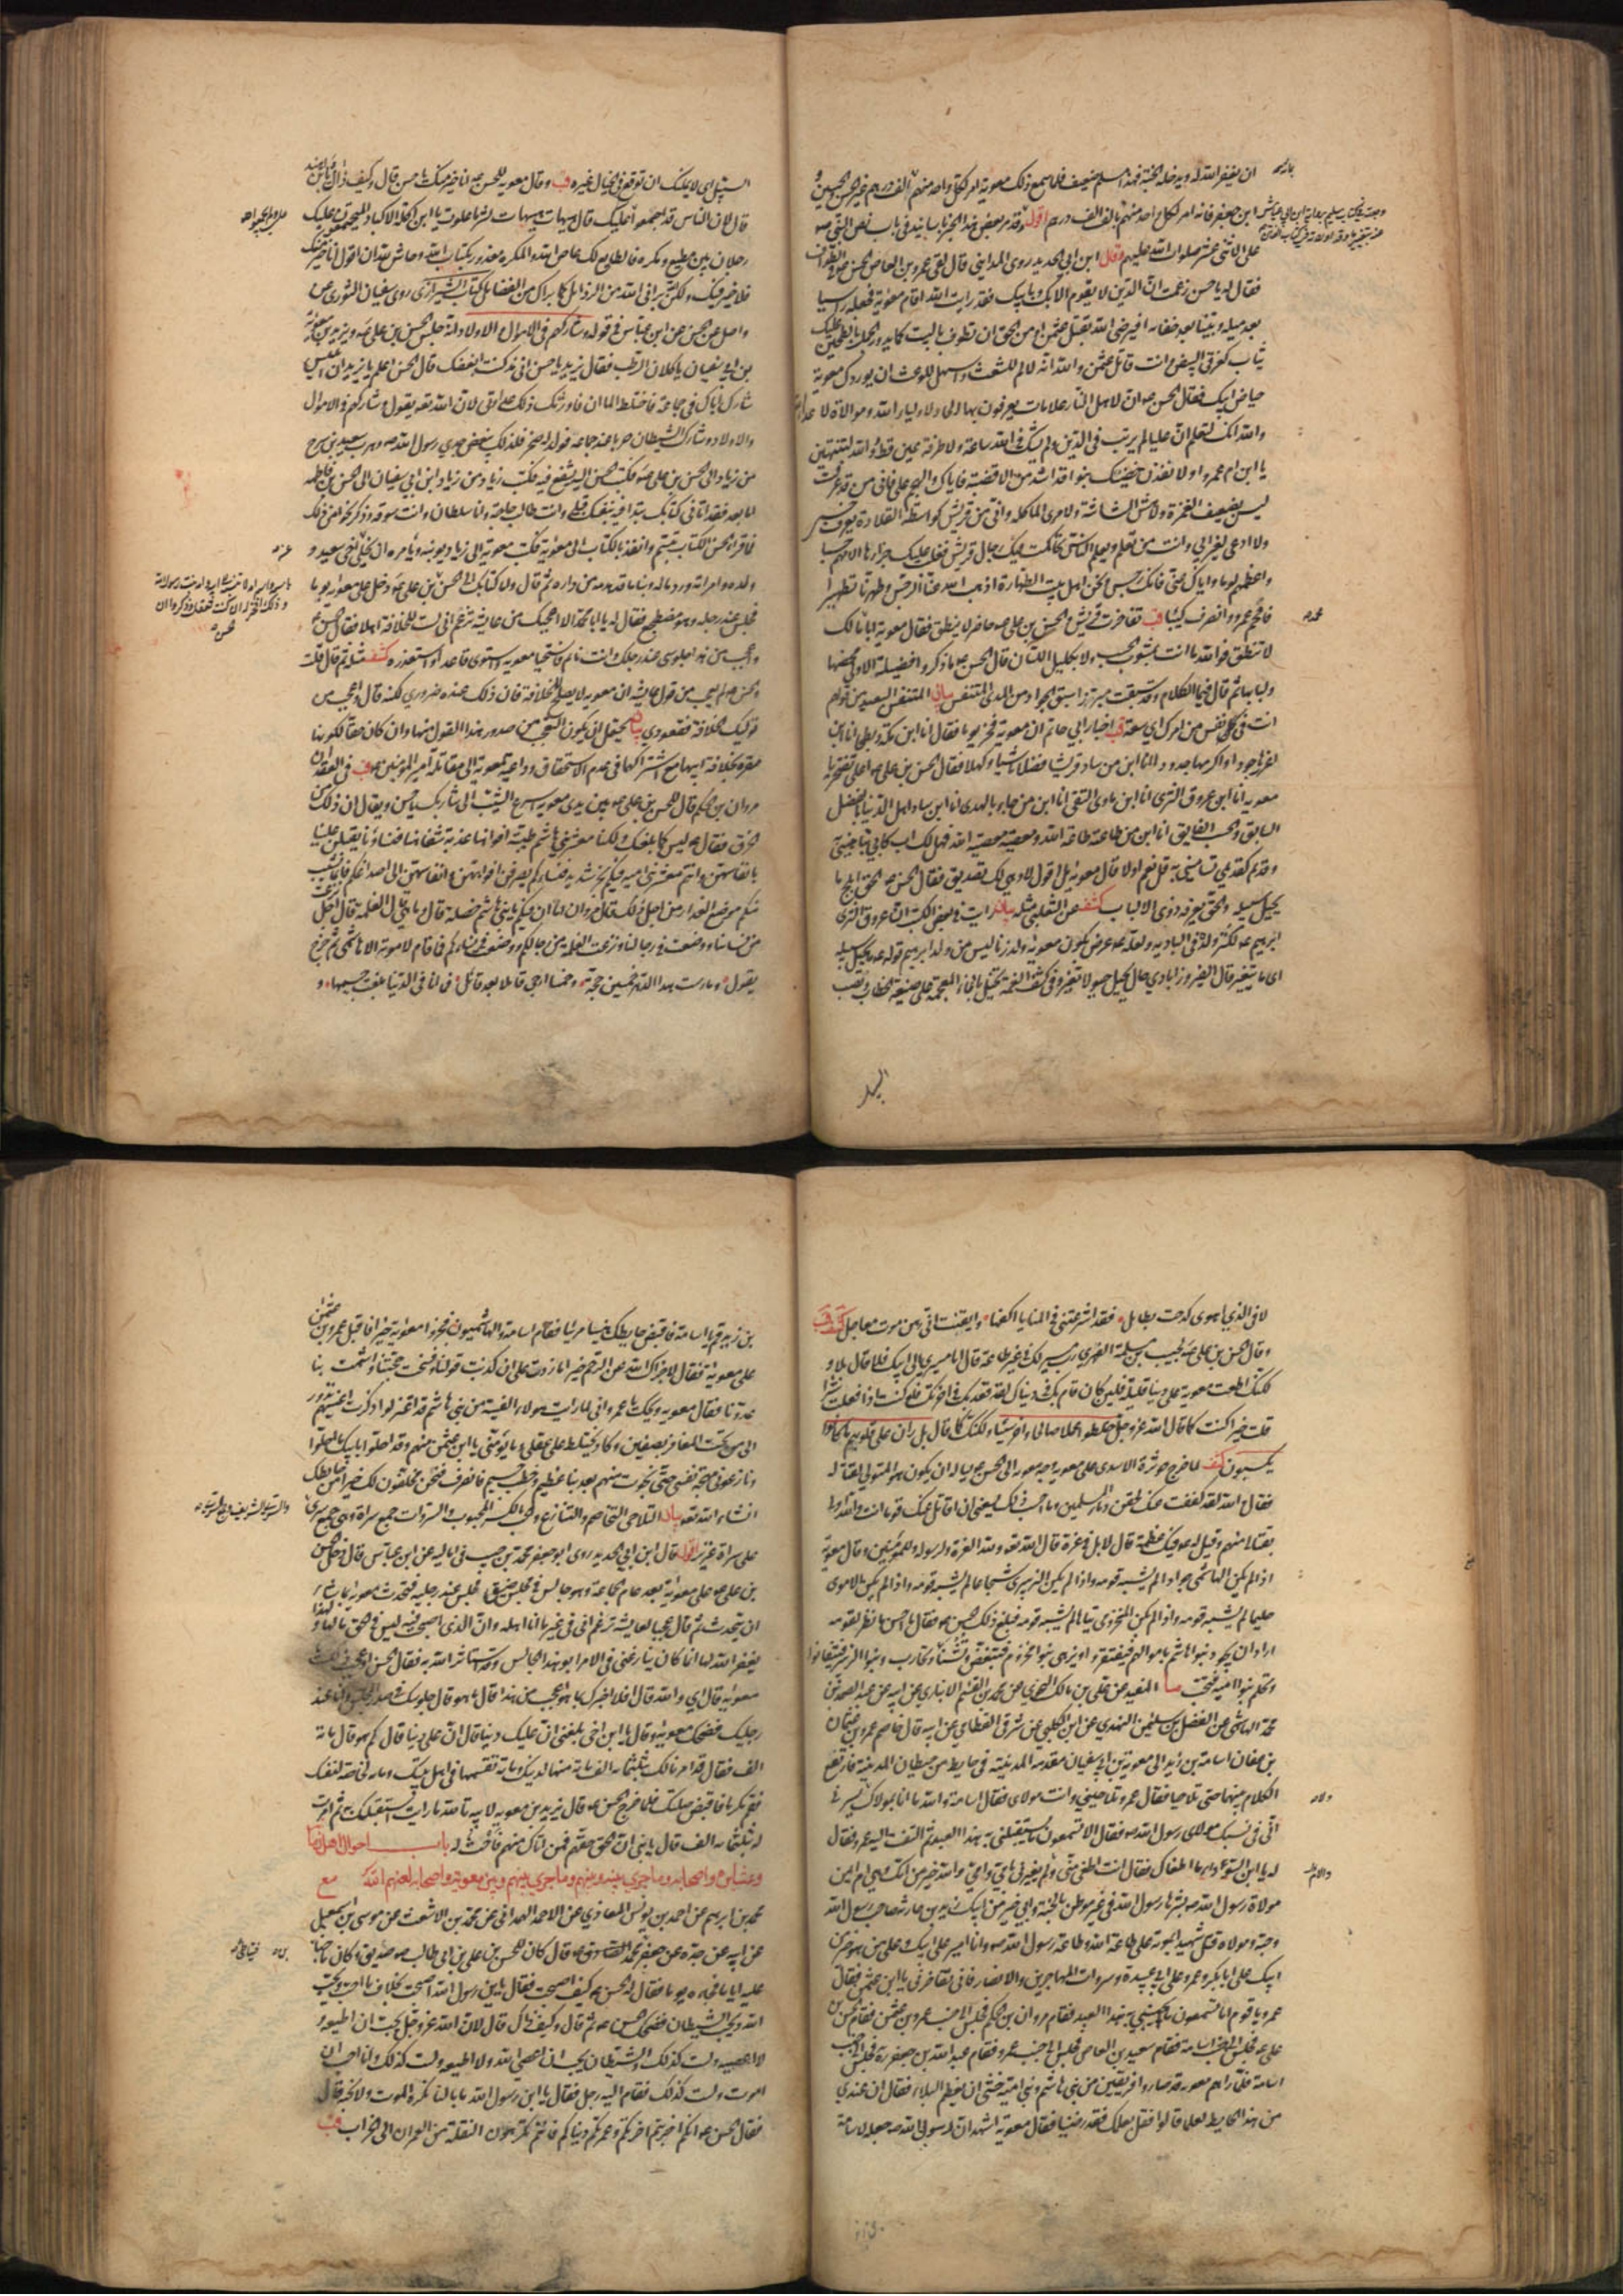 ان يغفر الله له ويدخله الجنة فهذا سليم ضعيف فلما سمع ذلك معوية امر لكل واحد منهم بمائة الف درهم غير الحسن والحسين و
ابن جعفر فانه امر لكل واحد منهم بالف الف درهم اقول وقد مر بعض هذا الخبر باسانيد في باب نص النبي صه
على الاثنى عشر صلوات الله عليهم وقال ابن ابي الحديد روى المدايني قال لقى عمرو بن العاص الحسن ع في الطواف
فقال له يا حسن زعمت ان الدين لا يقوم الا بك وبابيك فقد رايت الله اقام معوية فجعله راسيا
بعد ميله وبينا بعد خفائه افيرضى الله بقتل عثمن ام من الحق ان تطوف بالبيت كما يدور الجمل بالطحين عليك
ثياب كغرقئ البيض وانت قاتل عثمن والله انه لا لم للشعث واسهل للوعث ان يوردك معوية
حياض ابيك فقال الحسن ع ان لاهل النار علامات يعرفون بها الحاد لاولياء الله وموالاة لاعداء الله
والله انك لتعلم ان عليا لم يرتب في الدين ولم يشك في الله ساعة ولا طرفة عين قط وايم الله لتنتهين
يا ابن ام عمرو او لانفذن حضنيك بنوافذ اشد من الاقضبة فاياك والتهجم علي فاني من قد عرفت
ليس بضعيف الغمزة ولا هش المشاشة ولا مرئ الماكلة واني من قريش كواسطة القلادة يعرف حسبي
ولا ادعى لغير ابي وانت من تعلم ويعلم الناس تحاكمت فيك رجال قريش فغلب عليك جزارها الامهم حسبا
واعظمهم لوما واياك عني فانك رجس ونحن اهل بيت الطهارة اذهب الله عنا الرجس وطهرنا تطهيرا
فافحم عمرو وانصرف كئيبا قب تفاخرت قريش والحسن بن علي ع حاضر لا ينطق فقال معوية يا ابا محمد مالك
لا تنطق فوالله ما انت بمشوب الحسب ولا بكليل اللسان قال الحسن ع ما ذكروا فضيلة الا ولي محضها
ولبابها ثم قال فيم الكلام وقد سبقت مبرزا سبق الجواد من المدى المتنفس بيان المتنفس البعيد من قولهم
انت في نفس من امرك اي سعة قب اخبار ابي حاتم ان معوية فخر يوما فقال انا ابن بطحاء ومكة انا ابن
اغزرها جودا واكرمها جدودا انا ابن من ساد قريشا فضلا ناشيا وكهلا فقال الحسن بن علي ع اعلي تفتخر يا
معوية انا ابن عروق الثرى انا ابن ماوى التقى انا ابن من جاء بالهدى انا ابن من ساد اهل الدنيا بالفضل
السابق والحسب الفايق انا ابن من طاعته طاعة الله ومعصيته معصية الله فهل لك اب كابي تباهيني به
وقديم كقديمي تساميني به قل نعم او لا قال معوية بل اقول لا وهي لك تصديق فقال الحسن ع الحق ابلج ما
يحيل سبيله والحق يعرفه ذوو الالباب كشف عن الثعلبي مثله بيان رايت في بعض الكتب ان عروق الثرى
ابرهيم ع لكثرة ولده في البادية ولعله ع عرض بكون معوية ولد زنا ليس من ولد ابرهيم قوله ع ما يحيل سبيله
اي ما يتغير قال الفيروزابادي حال يحيل حيولا تغير وفي كشف الغمة تخيل بالخاء المعجمة على صيغة الخطاب ونصب
السبيل
السبيل اي لا يمكنك ان توقع في الخيال غيره قب وقال معوية للحسن ع انا خير منك يا حسن قال وكيف ذاك يا ابن هند
قال لان الناس قد اجمعوا علي ولم يجمعوا عليك قال هيهات هيهات لشر ما علوت يا ابن اكلة الاكباد المجتمعون عليك
رجلان بين مطيع ومكره فالطايع لك عاص لله والمكره معذور بكتاب الله وحاش لله ان اقول انا خير منك
فلا خير فيك ولكن الله براني من الرذايل كما براك من الفضايل كتاب الشيرازي روى سفيان الثوري عن
واصل عن الحسن عن ابن عباس في قوله وشاركهم في الاموال والاولاد انه جلس الحسن بن علي ع ويزيد بن معوية
بن ابي سفيان ياكلان الرطب فقال يزيد يا حسن اني مذ كنت ابغضك قال الحسن اعلم يا يزيد ان ابليس
شارك اباك في جماعه فاختلط الماءان فاورثك ذلك عداوتي لان الله تعه يقول وشاركهم في الاموال
والاولاد وشارك الشيطان حربا عند جماعه فولد له صخر فلذلك يبغض جدي رسول الله صه وهرب سعيد بن سرح
من زياد الى الحسن بن علي ع فكتب الحسن اليه يشفع فيه فكتب زياد من زياد ابن ابي سفيان الى الحسن بن فاطمه
اما بعد فقد اتاني كتابك تبدا فيه بنفسك قبلي وانت طالب حاجة وانا سلطان وانت سوقه وذكر نحوا من ذلك
فلما قرا الحسن الكتاب تبسم وانفذ بالكتاب الى معوية فكتب معوية الى زياد يؤنبه ويامره ان يخلي عن اخي سعيد و
ولده وامراته ورد ماله وبناء ما قد هدمه من داره ثم قال ولا كتابك الى الحسن بن علي ع دخل على معوية يوما
فجلس عند رجله وهو مضطجع فقال له يا ابا محمد الا اعجبك من عايشة تزعم اني لست للخلافة اهلا فقال الحسن ع
واعجب من هذا جلوسي عند رجلك وانت نائم فاستحيا معوية واستوى قاعدا واستعذره كشف مثله ثم قال قلت
والحسن ع لم يعجب من قول عايشة ان معوية لا يصلح للخلافة فان ذلك عنده ضروري لكنه قال واعجب من
توليك الخلافة قعودي بيان يحتمل ان يكون التعجب من صدور هذا القول منها وان كان حقا لكونها
مقرة بخلافة ابيها مع اشتراكهما في عدم الاستحقاق وداعية لمعوية الى مقاتلة امير المؤمنين ع قب في العقد ان
مروان بن الحكم قال للحسن بن علي ع بين يدي معوية اسرع الشيب الى شاربك يا حسن ويقال ان ذلك من
الخرق فقال ع ليس كما بلغك ولكنا معشر بني هاشم طيبة افواهنا عذبة شفاهنا فنساؤنا يقبلن علينا
بانفاسهن وانتم معشر بني امية فيكم بخر شديد فنساؤكم يصرفن افواههن وانفاسهن الى اصداغكم فانما يشيب
منكم موضع العذار من اجل ذلك قال مروان اما ان فيكم يا بني هاشم خصلة قال وما هي قال الغلمة قال اجل
من نسائنا ووضعت في رجالنا ونزعت الغلمة من رجالكم ووضعت في نسائكم فما قام لاموية الا هاشمي ثم خرج
يقول ومارست هذا الدهر خمسين حجة وخمسا ارجي قابلا بعد قابل فما انا في الدنيا بلغت جسيمها و
لا في الذي اهوى كدحت بطايل فقد اشرعتني في المنايا اكفها وايقنت اني رهن موت معاجل كشف قب
وقال الحسن بن علي ع لحبيب بن مسلمة الفهري رب مسير لك في غير طاعة قال اما مسيري الى ابيك فلا قال بلى و
لكنك اطعت معوية على دنيا قليلة فلئن كان قام بك في دنياك لقد قعد بك في اخرتك فلو كنت اذا فعلت شرا
قلت خيرا كنت كما قال الله عز وجل خلطوا عملا صالحا واخر سيئا ولكنك كما قال بل ران على قلوبهم ما كانوا
يكسبون كشف لما خرج حوثرة الاسدي على معوية وجه معوية الى الحسن ع يساله ان يكون هو المتولي لقتاله
فقال والله لقد كففت عنك لحقن دماء المسلمين وما احسب ذلك يسعني ان اقاتل عنك قوما انت والله اولى
بقتالي منهم وقيل له ع فيك عظمة قال لا بل في عزة قال الله تعه ولله العزة ولرسوله وللمؤمنين وقال معوية
اذا لم يكن الهاشمي جوادا لم يشبه قومه واذا لم يكن الزبيري شجاعا لم يشبه قومه واذا لم يكن الاموي
حليما لم يشبه قومه واذا لم يكن المخزومي تياها لم يشبه قومه فبلغ ذلك الحسن ع فقال ما احسن ما نظر لقومه
اراد ان يجود بنو هاشم باموالهم فيفتقروا ويزهى بنو مخزوم فتبغض وتشنا وتحارب بنو الزبير فيتفانوا
وتحلم بنو امية فتحب ما المفيد عن علي بن مالك النحوي عن محمد بن القسم الانباري عن ابيه عن عبد الصمد بن
محمد الهاشمي عن الفضل بن سليمن النهدي عن ابن الكلبي عن شرقي القطامي عن ابيه قال خاصم عمرو بن عثمان
بن عفان اسامة بن زيد الى معوية بن ابي سفيان مقدمه المدينة في حايط من حيطان المدينة فارتفع
الكلام بينهما حتى تلاحيا فقال عمرو تلاحيني وانت مولاي فقال اسامة والله ما انا بمولاك ولا يسرني
اني في نسبك مولاي رسول الله صه فقال الا تسمعون ما يستقبلني به هذا العبد ثم التفت اليه عمرو فقال
له يا ابن السوداء ما اطغاك فقال انت اطغى مني ولم تعيرني بامي وامي والله خير من امك وهي ام ايمن
مولاة رسول الله صه بشرها رسول الله في غير موطن بالجنة وابي خير من ابيك زيد بن حارثة صاحب رسول الله
وحبه ومولاه قتل شهيدا بموتة على طاعة الله وطاعة رسول الله صه وانا امير على ابيك وعلى من هو خير من
ابيك على ابي بكر وعمر وعلى ابي عبيدة وسروات المهاجرين والانصار فاني تفاخرني يا ابن عثمن فقال
عمرو يا قوم اما تسمعون ما يجيبني به هذا العبد فقام مروان بن الحكم فجلس الى جنب عمرو بن عثمن فقام الحسن بن
علي ع فجلس الى جنب اسامة فقام سعيد بن العاص فجلس الى جنب عمرو فقام عبد الله بن جعفر فجلس الى جنب
اسامة فلما راهم معوية قد صاروا فريقين من بني هاشم وبني امية خشى ان يعظم البلاء فقال ان عندي
من هذا الحايط لعلما قالوا فقل بعلمك فقد رضينا فقال معوية اشهد ان رسول الله صه جعله لاسامة
بن زيد قم يا اسامة فاقبض حايطك هنيئا مريئا فقام اسامة والهاشميون فجزوا معوية خيرا فاقبل عمرو بن عثمن
على معوية فقال لا جزاك الله عن الرحم خيرا ما زدت على ان كذبت قولنا وفسخت حجتنا واشمت بنا
عدونا فقال معوية ويحك يا عمرو اني لما رايت هؤلاء الفتية من بني هاشم قد اعتزلوا ذكرت اعينهم تدور
الي من تحت المغافر بصفين وكاد يختلط علي عقلي وما يؤمنني يا ابن عثمن منهم وقد احلوا بابيك ما احلوا
ونازعوني مهجة نفسي حتى نجوت منهم بعد نبا عظيم وخطب جسيم فانصرف فنحن مخلفون لك خيرا من حايطك
انشاء الله تعه بيان التلاحي التخاصم والتنازع والحب بالكسر المحبوب والسروات جمع سراة وهي جمع سري
على سراة عزيز اقول قال ابن ابي الحديد روى ابو جعفر محمد بن حبيب في اماليه عن ابن عباس قال دخل الحسن
بن علي ع على معوية بعد عام الجماعة وهو جالس في مجلس ضيق فجلس عند رجليه فتحدث معوية بما شاء
ان يتحدث ثم قال عجبا لعايشة تزعم اني في غير ما انا اهله وان الذي اصبحت فيه ليس في الحق ما لها ولهذا
يغفر الله لها انما كان ينازعني في الامر ابو هذا الجالس وقد استاثر الله به فقال الحسن او عجب ذلك يا
معوية قال اي والله قال افلا اخبرك بما هو اعجب من هذا قال ما هو قال جلوسك في صدر المجلس وانا عند
رجليك فضحك معوية وقال يا ابن اخي بلغني ان عليك دينا قال ان علي دينا قال كم هو قال مائة
الف فقال قد امرنا لك بثلثمائة الف مائة منها لدينك ومائة تقسمها في اهل بيتك ومائة لخاصة نفسك
فقم مكرما فاقبض صلتك فلما خرج الحسن ع قال يزيد بن معوية لابيه تالله ما رايت استقبلك به ثم امرت
له بثلثمائة الف قال يا بني ان الحق حقهم فمن اتاك منهم فاحث له باب احوال اهل زمانه
وعشايره واصحابه وما جرى بينه وبينهم وما جرى بينهم وبين معوية واصحابه لعنهم الله مع
محمد بن ابرهيم عن احمد بن يونس المعاذي عن الاحمد الهمداني عن محمد بن الاشعث عن موسى بن اسمعيل
عن ابيه عن جده عن جعفر بن محمد الصادق ع قال كان للحسن بن علي بن ابي طالب صه صديق وكان ماجنا
عليه اياما فجاءه يوما فقال له الحسن ع كيف اصبحت فقال يا ابن رسول الله اصبحت بخلاف ما احب ويحب
الله ويحب الشيطان فضحك الحسن ع ثم قال وكيف ذاك قال لان الله عز وجل يحب ان اطيعه و
لا اعصيه ولست كذلك والشيطان يحب ان اعصي الله ولا اطيعه ولست كذلك وانا احب ان
لا اموت ولست كذلك فقام اليه رجل فقال يا ابن رسول الله ما بالنا نكره الموت ولا نحبه قال
فقال الحسن ع انكم اخربتم اخرتكم وعمرتم دنياكم فانتم تكرهون النقلة من العمران الى الخراب قب